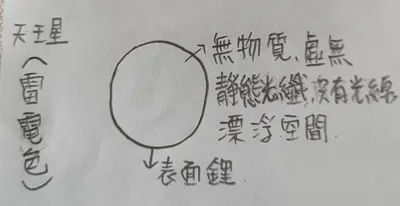 天王星
(雷電色)
無物質.虛無
靜態光纖,沒有光線
漂浮空間.
表面鋰